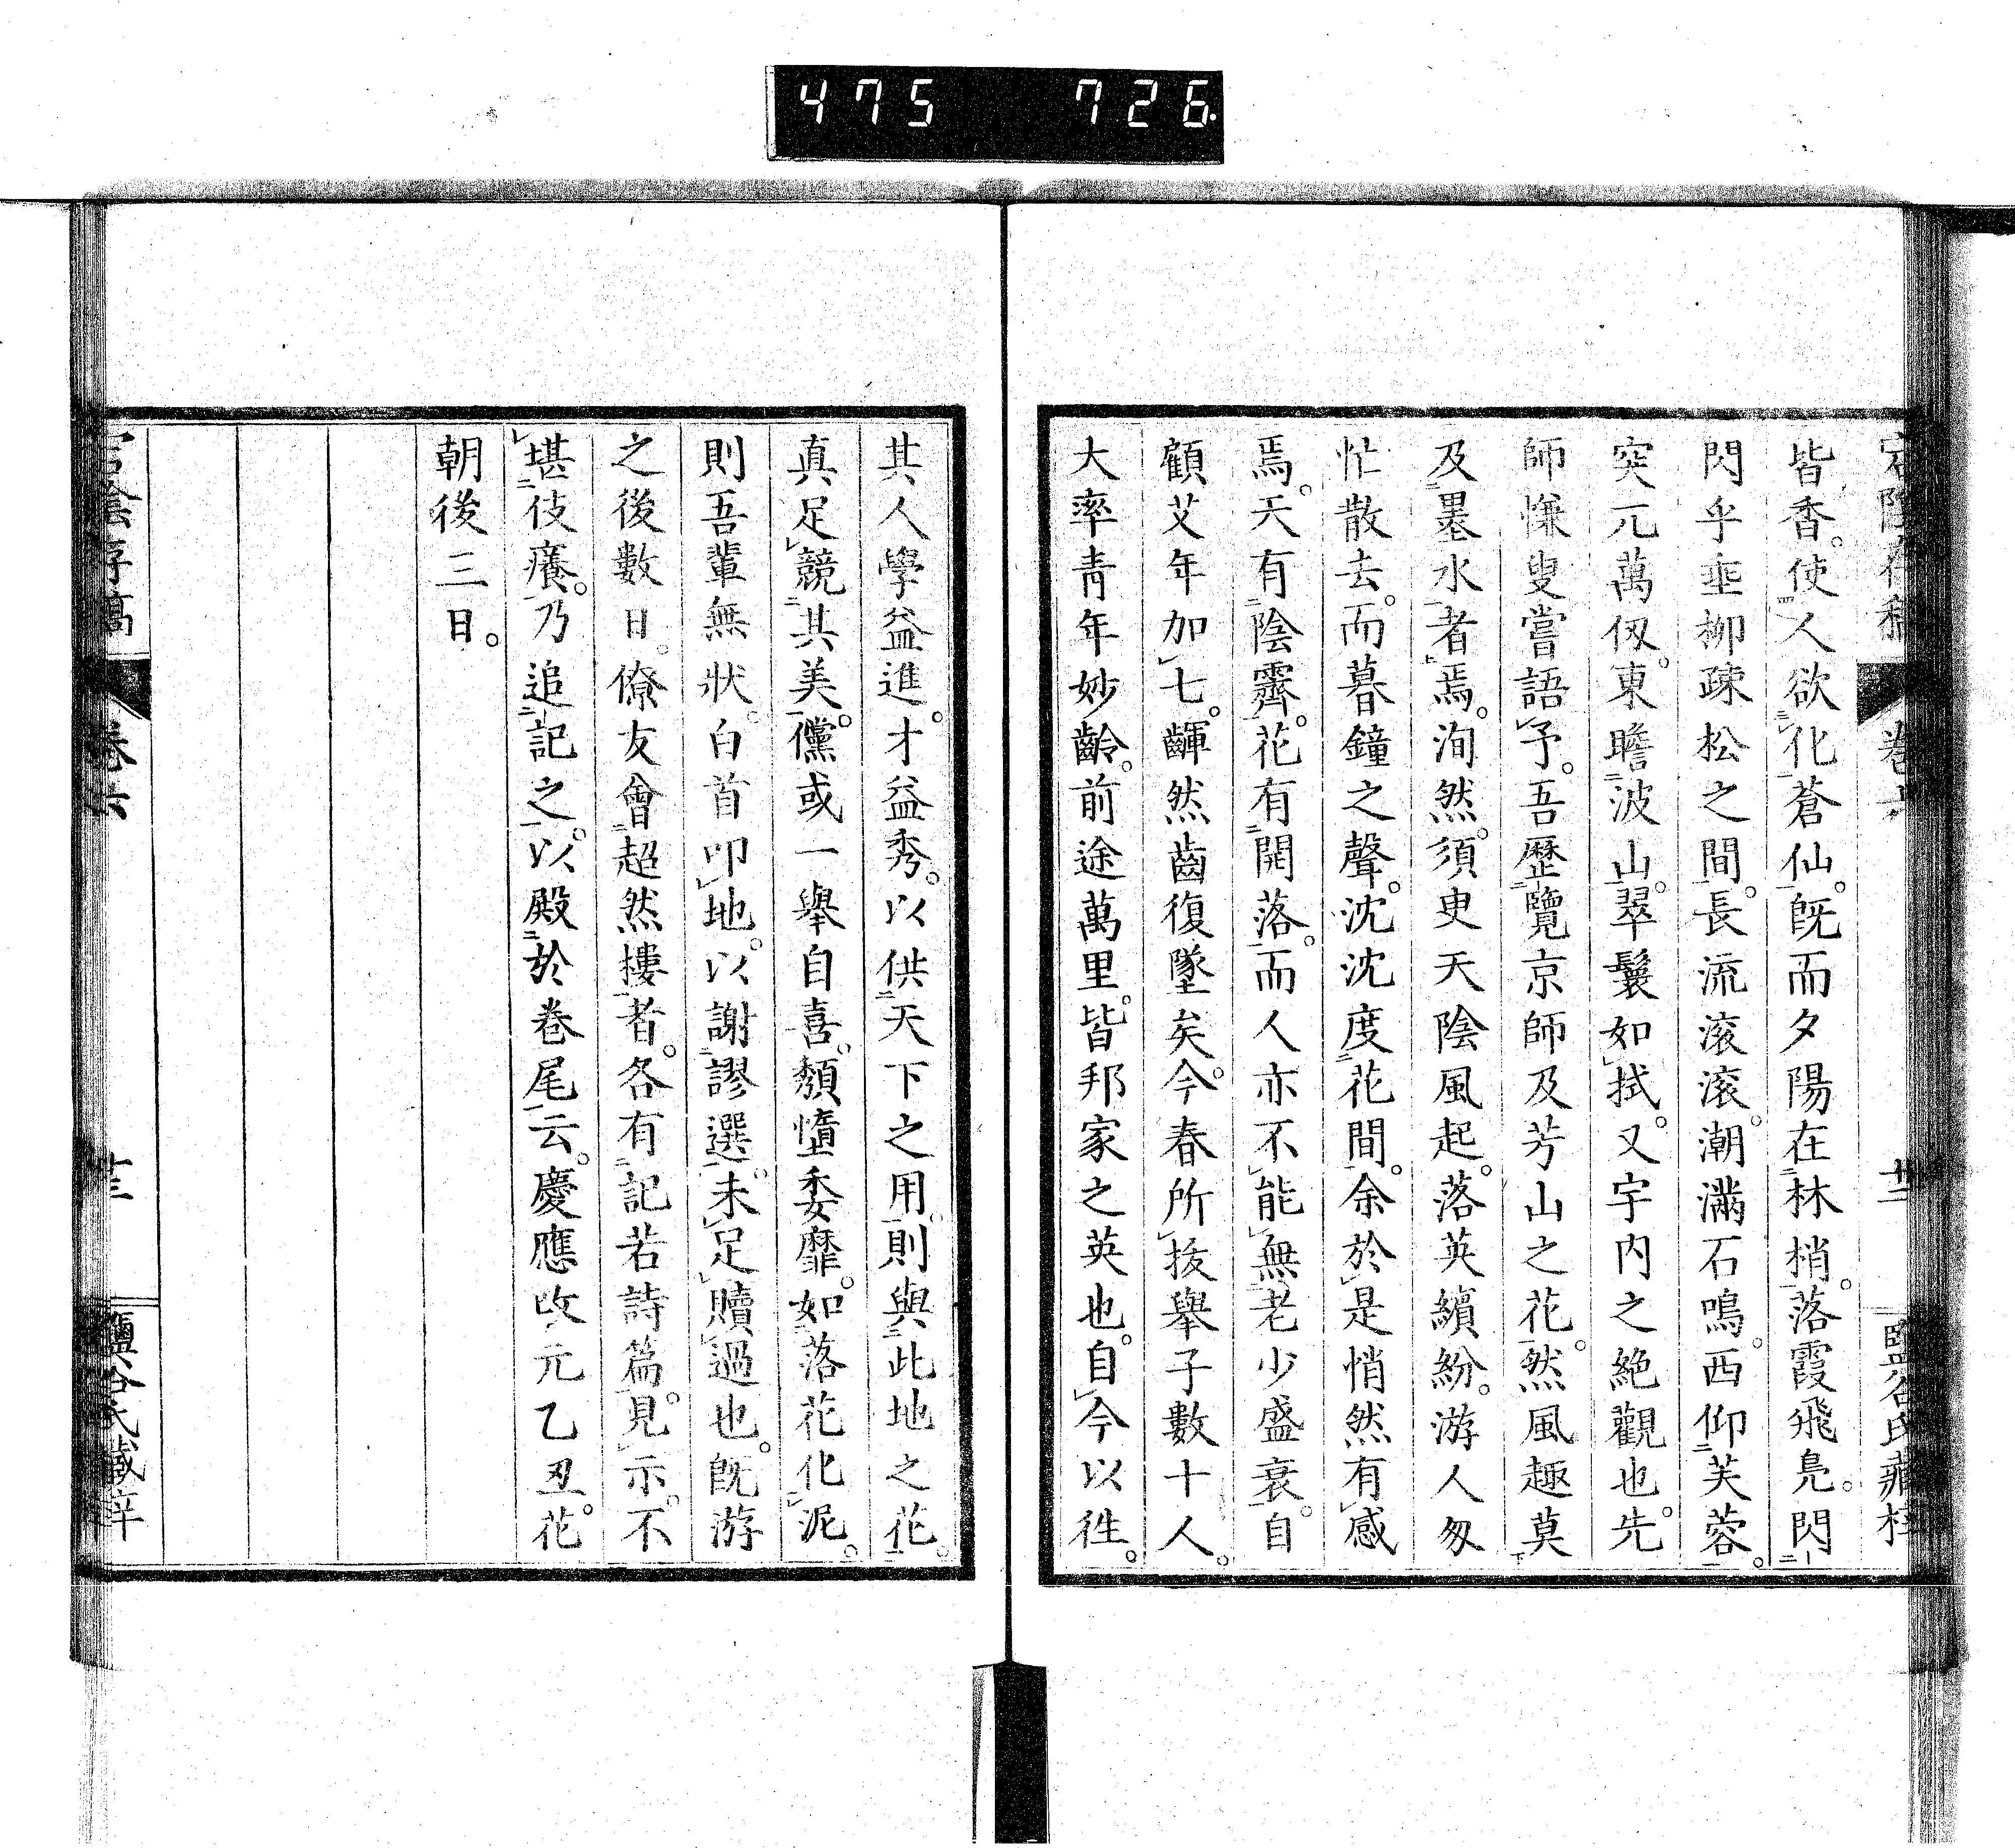 475 726
宕陰存稿 卷六 廿二 鹽谷氏藏梓
皆香。使人欲化蒼仙。既而夕陽在林梢。落霞飛鳧。閃
閃乎垂柳疎松之間。長流滚滚。潮滿石鳴。西仰芙蓉。
突兀萬仭。東瞻波山。翠鬟如拭。又宇内之絶觀也。先
師慊叟嘗語予。吾歷覽京師及芳山之花。然風趣莫
及墨水者焉。洵然。須臾天陰風起。落英繽紛。游人匆
忙散去。而暮鐘之聲。沈沈度花間。余於是悄然有感
焉。天有陰霽。花有開落。而人亦不能無老少盛衰。自
顧艾年加七。齳然齒復墜矣。今春所拔舉子數十人。
大率青年妙齡。前途萬里。皆邦家之英也。自今以往。
其人學益進。才益秀。以供天下之用。則與此地之花。
真足競其美。儻或一舉自喜。頽惰委靡。如落花化泥。
則吾輩無狀。白首叩地。以謝謬選。未足贖過也。既游
之後數日。僚友會超然樓者。各有記若詩篇。見示。不
堪伎癢。乃追記之。以殿於卷尾云。慶應改元乙丑。花
朝後三日。
宕陰存稿 卷六 廿三 鹽谷氏藏梓